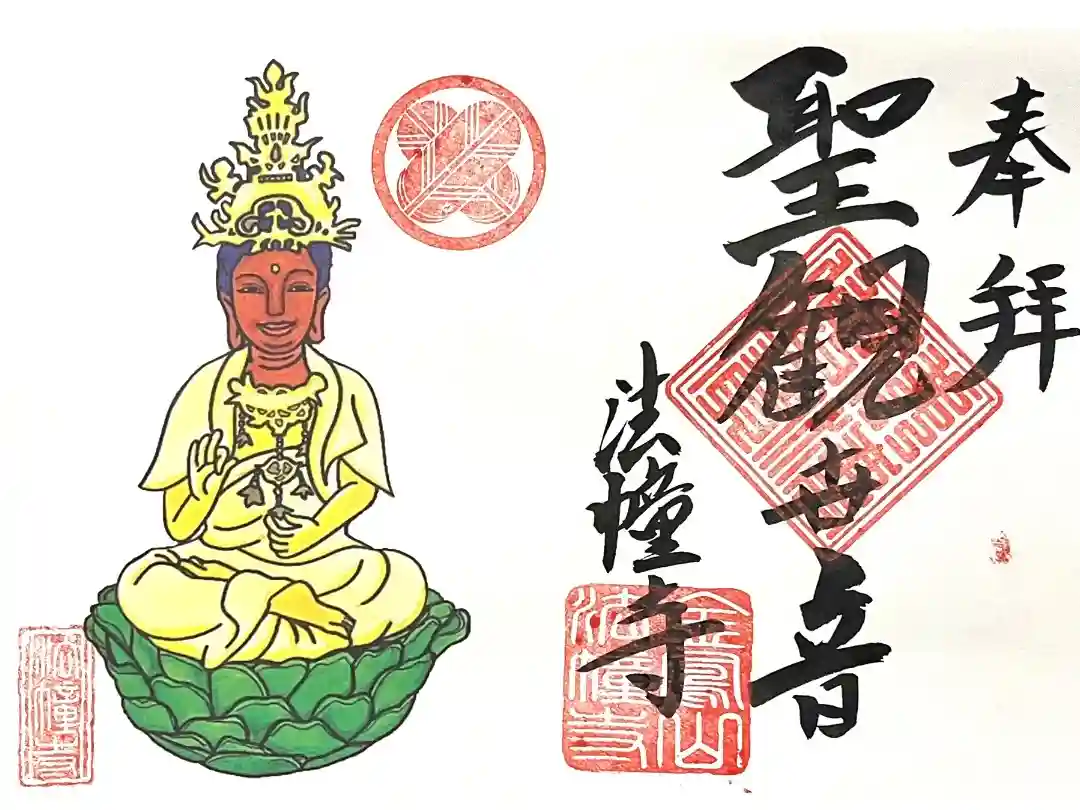 奉拝
聖観世音
法幢寺
金鳳山
法幢寺
法幢寺